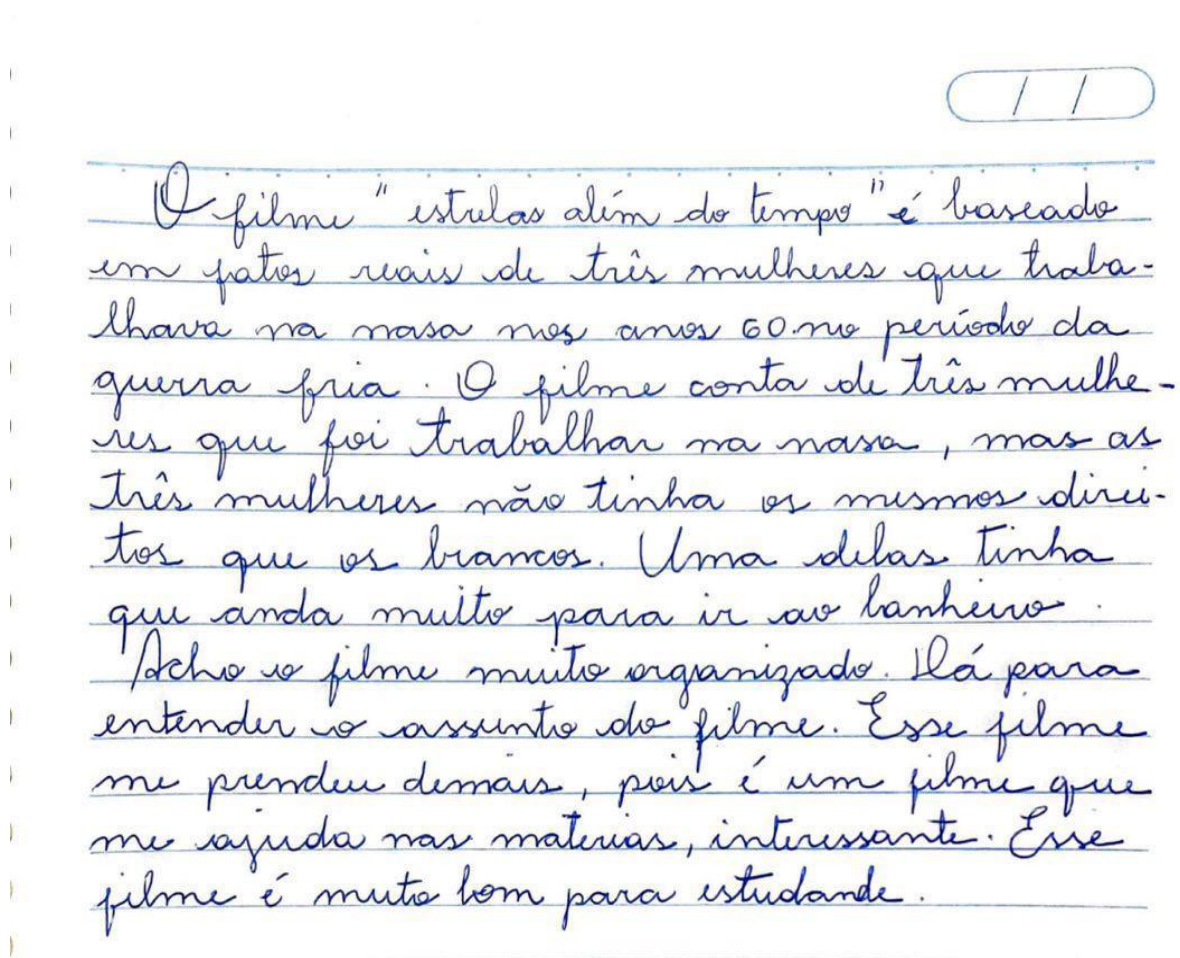 / /
O filme "estrelas além do tempo" é baseado
em fatos reais de três mulheres que traba-
lhava na nasa nos anos 60.no período da
guerra fria. O filme conta de três mulhe-
res que foi trabalhar na nasa, mas as
três mulheres não tinha os mesmos direi-
tos que os brancos. Uma delas tinha
que anda muito para ir ao banheiro.
Acho o filme muito organizado. Dá para
entender o assunto do filme. Esse filme
me prendeu demais, pois é um filme que
me ajuda nas materias, interessante. Esse
filme é muto bom para estudande.